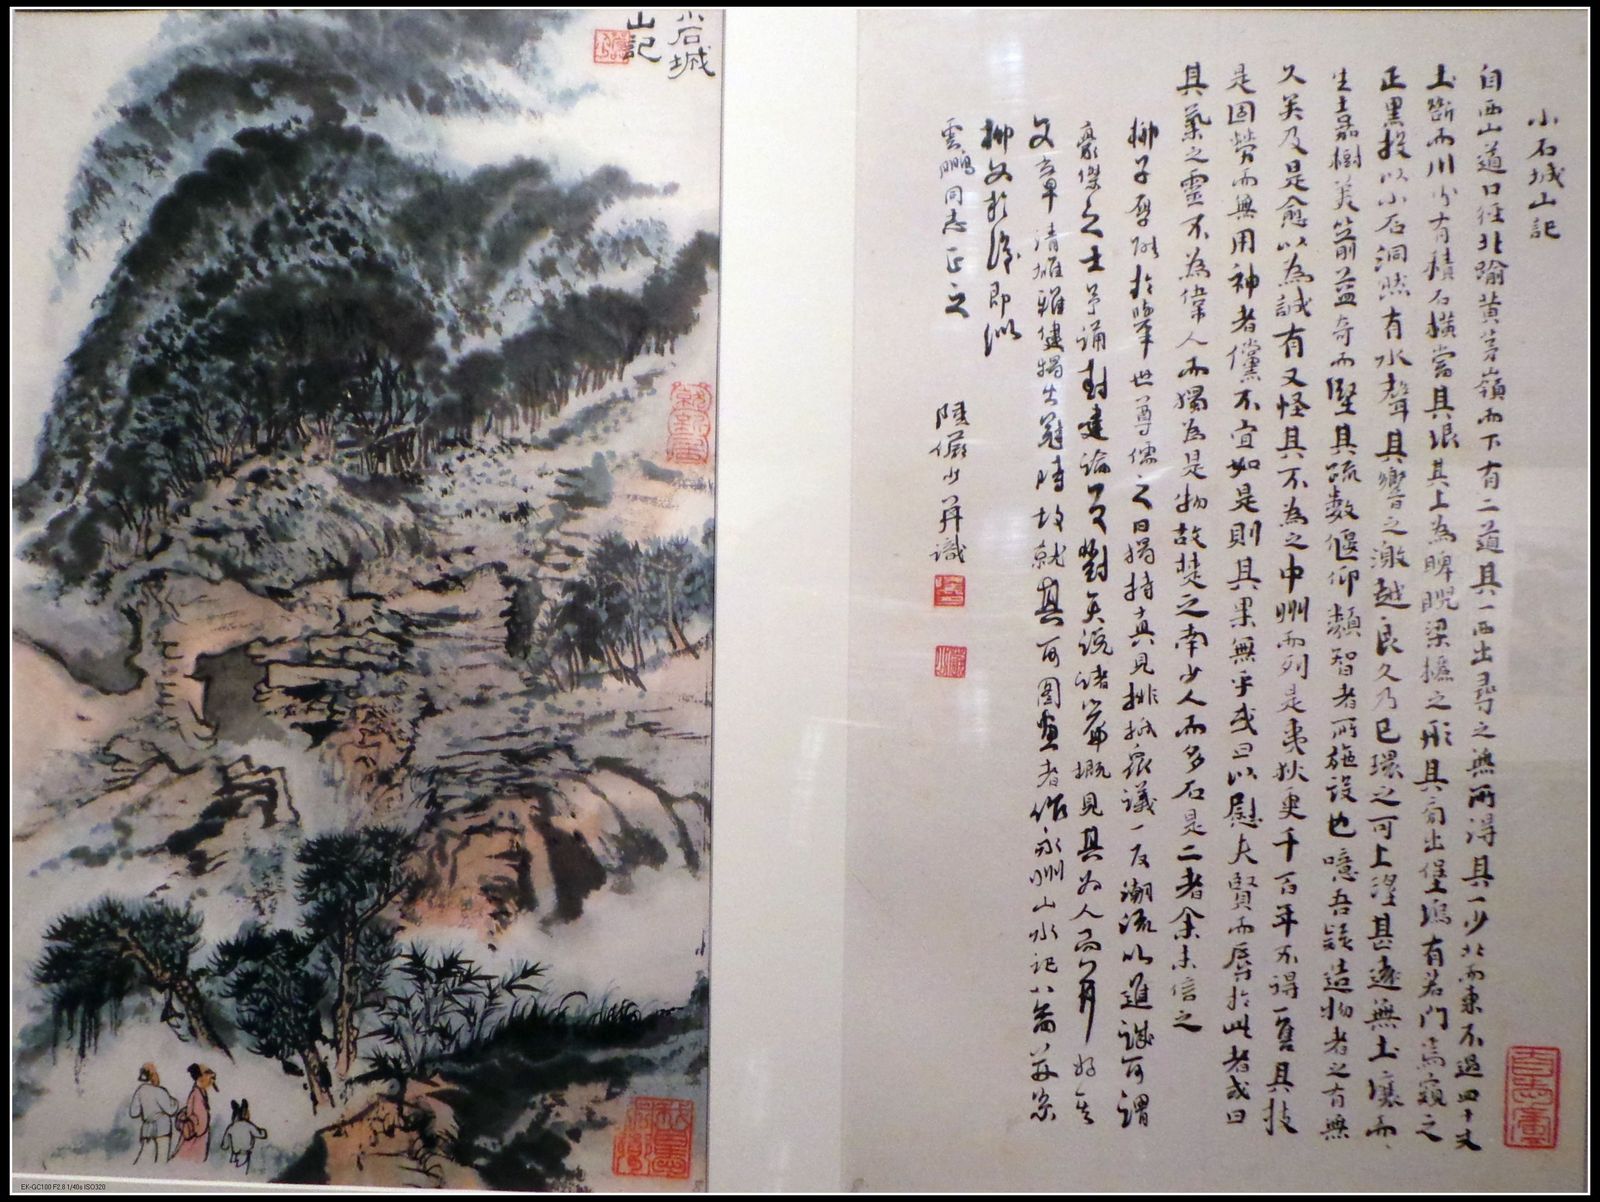 小石城
山記
小石城山記
自西山道口徑北踰黃茅嶺而下有二道其一西出尋之無所得其一少北而東不過四十丈
土斷而川分有積石橫當其垠其上為睥睨梁欐之形其旁出堡塢有若門焉窺之
正黑投以小石洞然有水聲其響之激越良久乃已環之可上望甚遠無土壤而
生嘉樹美箭益奇而堅其疏數偃仰類智者所施設也噫吾疑造物者之有無
久矣及是愈以為誠有又怪其不為之中州而列是夷狄更千百年不得一售其技
是固勞而無用神者儻不宜如是則其果無乎或曰以慰夫賢而辱於此者或曰
其氣之靈不為偉人而獨為是物故楚之南少人而多石是二者余未信之
柳子厚於世尊儒之日獨持真見排衆議一反潮流以進可謂
豪傑之士予誦封建論及對天說諸篇概見其為人而好其
文章清雄雅健獨出冠時故就其可圖畫者作永州山水記八篇并寫
柳文於後即似
雲鵬同志正之
陸儼少并識
EK-GC100 F2.8 1/40s ISO320